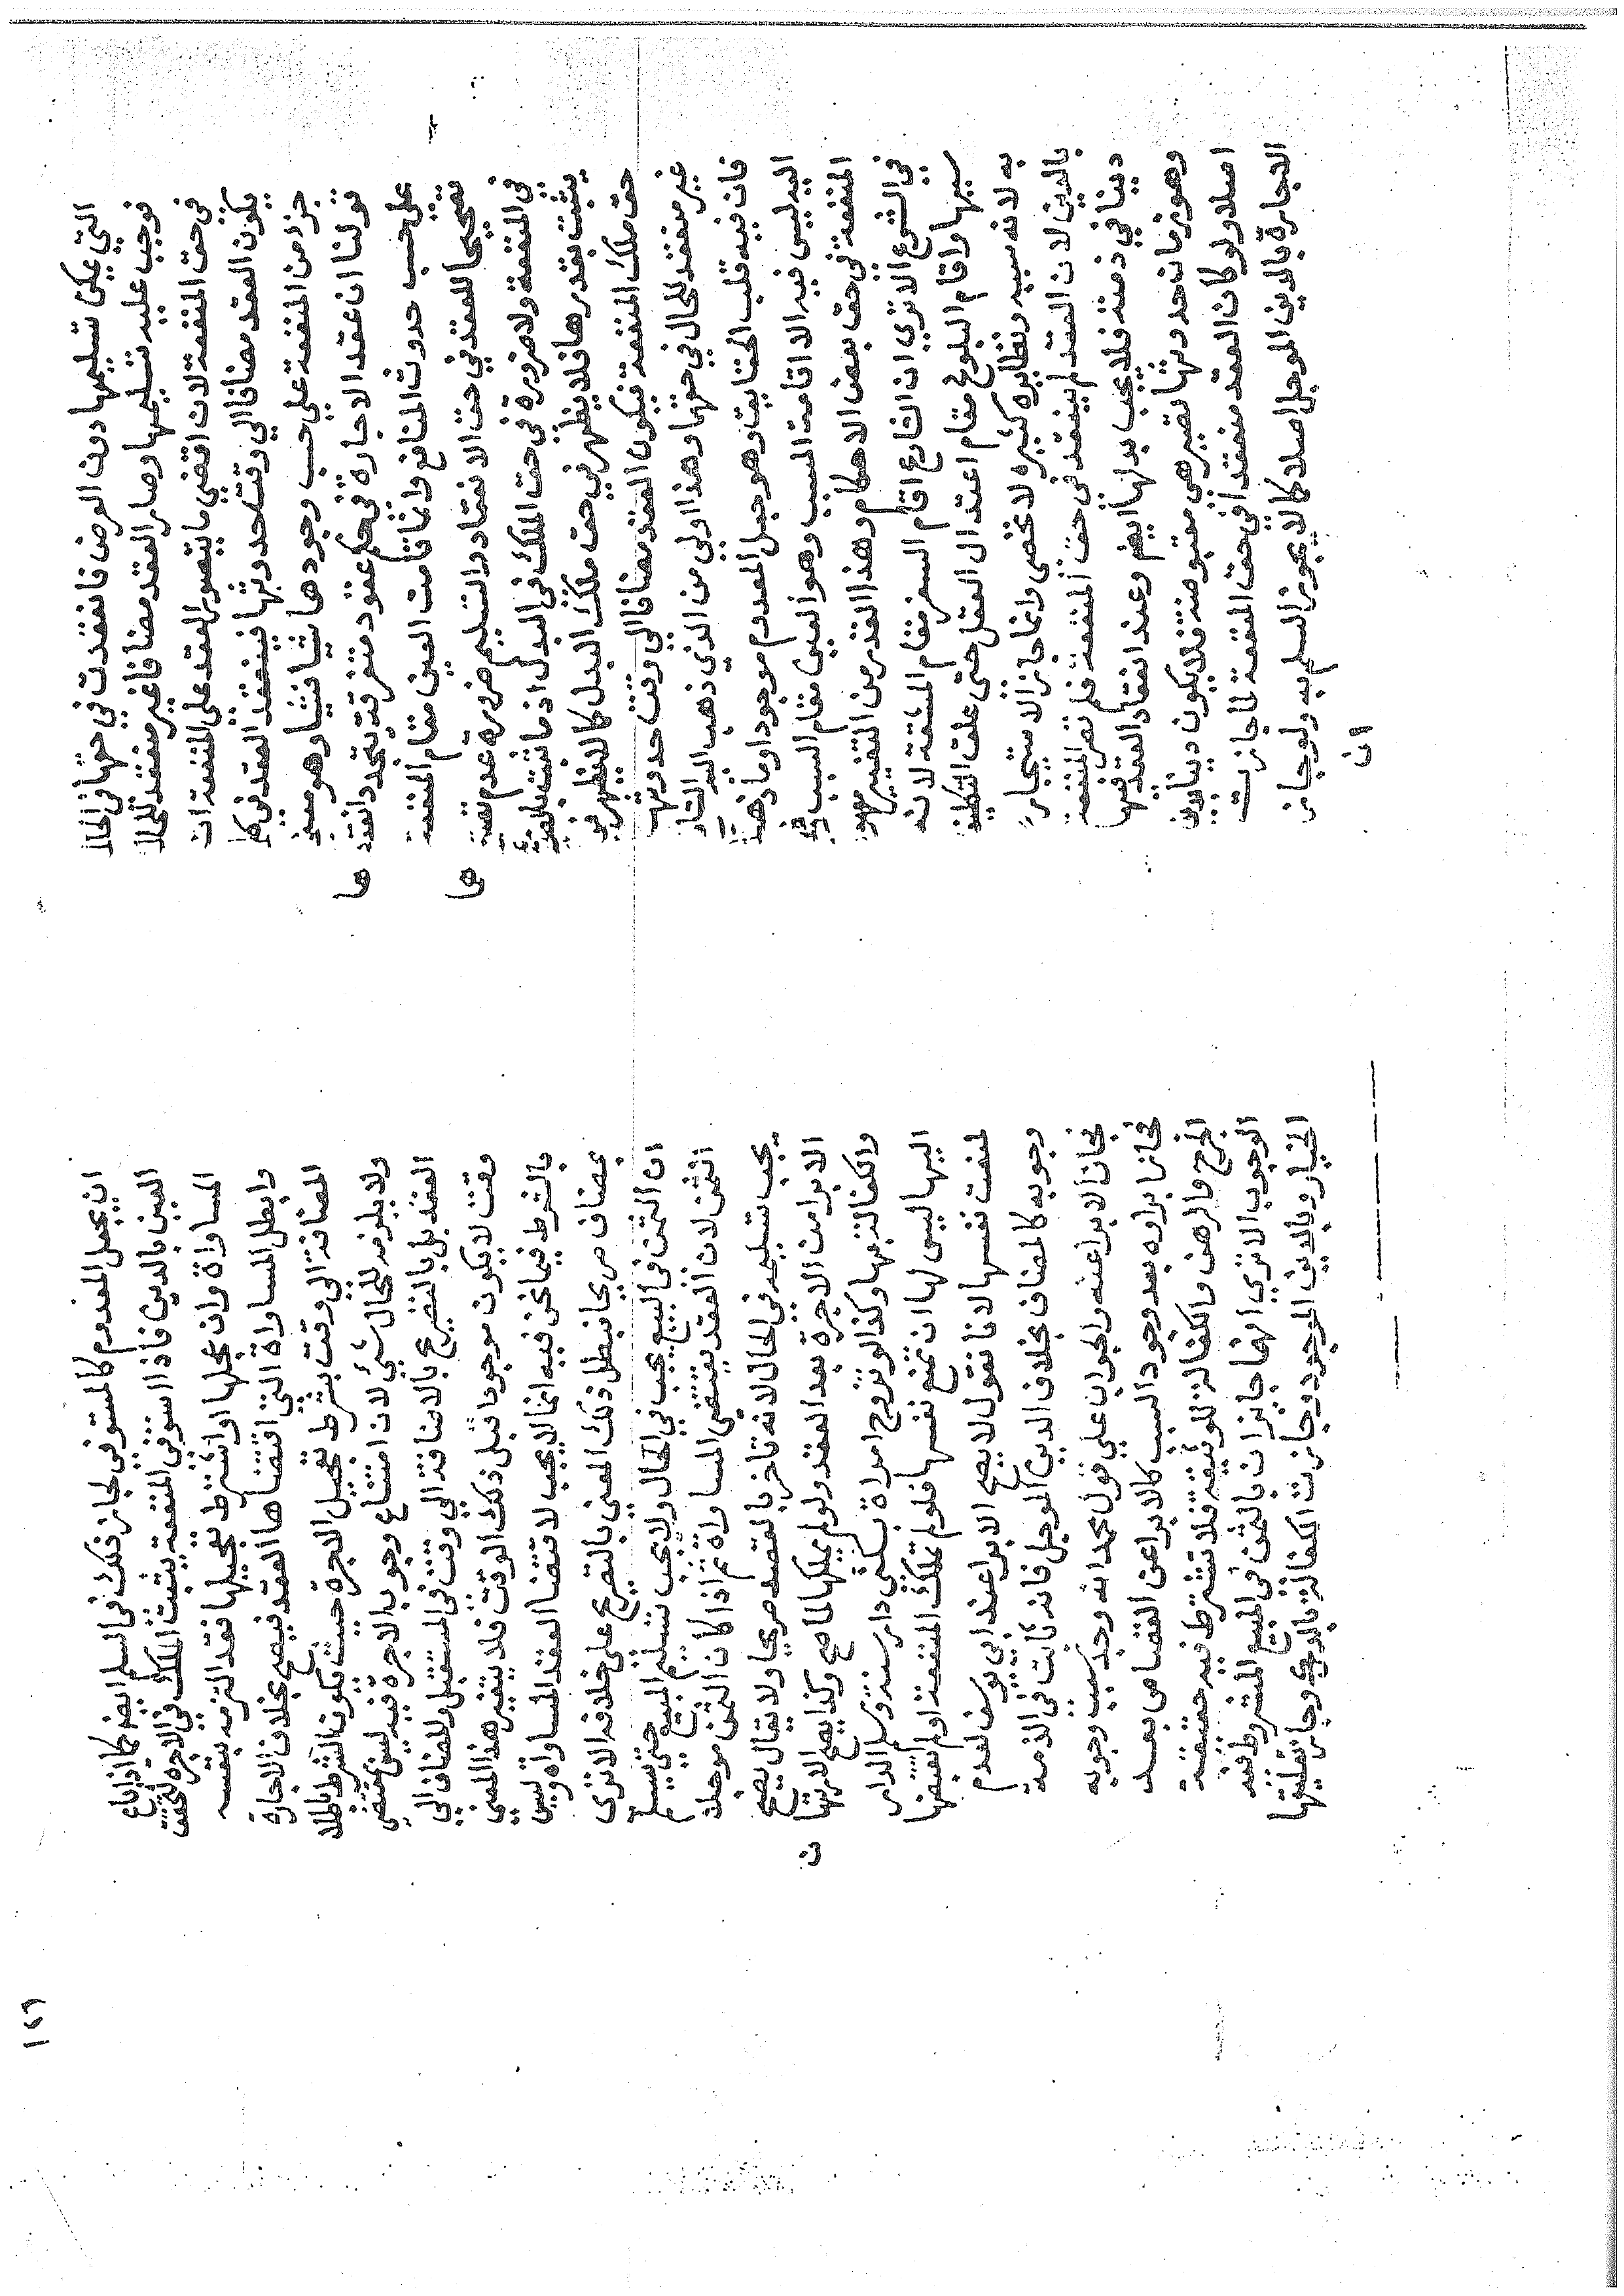 التي يمكن تسليمها دون العرض فانعقدت في حقها في الحال
فوجب عليه تسليمها وصار العقد مضافا غير منعقد للحال
في حق المنفعة لان اقصي ما يتصور العقد على المنفعة ان
يكون العقد مضافا الي وقت حدوثها فينعقد العقد في كل
جزا من المنفعة علي حسب وجودها شيا فشيا وهو معنى
قولنا ان عقد الاجارة في حكم عقود متفرقة يتجدد انعقادها
على حسب حدوث المنافع وانما قامت العين مقام المنفعة
تصحيحا للعقد في حق الانعقاد والتسليم ضرورة عدم تصورها
في المنفعة ولا ضرورة في حق الملك في البدل اذ ما ثبت للضرورة
يثبت بقدرها فلا يظهر في حق ملك البدل كما لا يظهر في
حق ملك المنفعة فيكون العقد مضافا الي وقت حدوثها
غير منعقد للحال في حقها وهذا اولي من الذي ذهب اليه الشافعي
فان فيه قلب الحقايق وهو جعل المعدوم موجودا وما ذهبنا
اليه ليس فيه الا اقامة السبب وهو العين مقام المسبب وهو
المنفعة في حق بعض الاحكام وهذا القدر من التغيير معهود
في الشرع الا تري ان الشارع اقام السفر مقام المشقة لانه
سببها واقام البلوغ مقام اعتدال العقل حتى علق التكليف
به لانه سببه ونظايره كثيرة لا تحصى وانما جاز الاستيجار
بالدين لان العقد لم ينعقد في حق المنفعة فلم تصر المنفعة
دينا في ذمته فلا يجب بدلها ايضا وعند انعقاد العقد فيها
وهو زمان حدوثها تصير هي مقبوضة فلا يكون دينا بدين
اصلا ولو كان العقد منعقدا في حق المنفعة لما جازت
الاجارة بالدين الموجل اصلا كما لا يجوز السلم به ولو جاز
ان
ان يجعل المعدوم كالمستوفى لجاز ذلك في السلم ايضا كما اذا باع
العين بالدين فاذا استوفى المنفعة يثبت الملك في الاجرة لتحقق
المساواة وان عجلها او اشترط تعجيلها فقد التزمه بنفسه
وابطل المساواة التي اقتضاها العقد فيصح بخلاف الاجارة
المضافة الي وقت بشرط تعجيل الاجرة حيث يكون الشرط باطلا
ولا يلزمه للحال شي لان امتناع وجوب الاجرة فيه ليس بمقتضى
العقد بل بالتصريح بالاضافة الي وقت في المستقبل والمضاف الي
وقت لا يكون موجودا قبل ذلك الوقت فلا يتغير هذا المعنى
بالشرط فيما نحن فيه انما لا يجب لاقتضا العقد المساواة وليس
بمضاف صريحا فبطل ذلك المعنى بالتصريح على خلافه الا ترى
ان الثمن في البيع يجب في الحال ولا يجب تسليم المبيع حتى يسلم
الثمن لان العقد يقتضي المساواة ثم اذا كان الثمن موجلا
يجب تسليمه في الحال لانه تاخر بالقصد صريحا ولا يقال يصح
الابرا من الاجرة بعد العقد ولو لم يملكها لما صح وكذا يصح الارتهان
والكفالة بها وكذا لو تزوج امراة بسكنى دار سنة وسلم الدار
اليها ليس لها ان تمنع نفسها فلو لم تملك المنفعة او لم تقبضها
لمنعت نفسها لانا نقول لا يصح الابرا عند ابي يوسف لعدم
وجوبه كالمضاف بخلاف الدين الموجل فانه ثابت في الذمة
فجاز الابرا عنه والجواب علي قول محمد انه وجد سبب وجوبه
فجاز ابراوه بعد وجود السبب كالابرا عن القصاص بعد
الجرح والرهن والكفالة للوثيقة فلا تشترط فيه حقيقة
الوجوب الا تري انهما جايزان بالثمن في المبيع المشروط فيه
الخيار وبالدين الموعود وجازت الكفالة بالدرك وجاز تعليقها